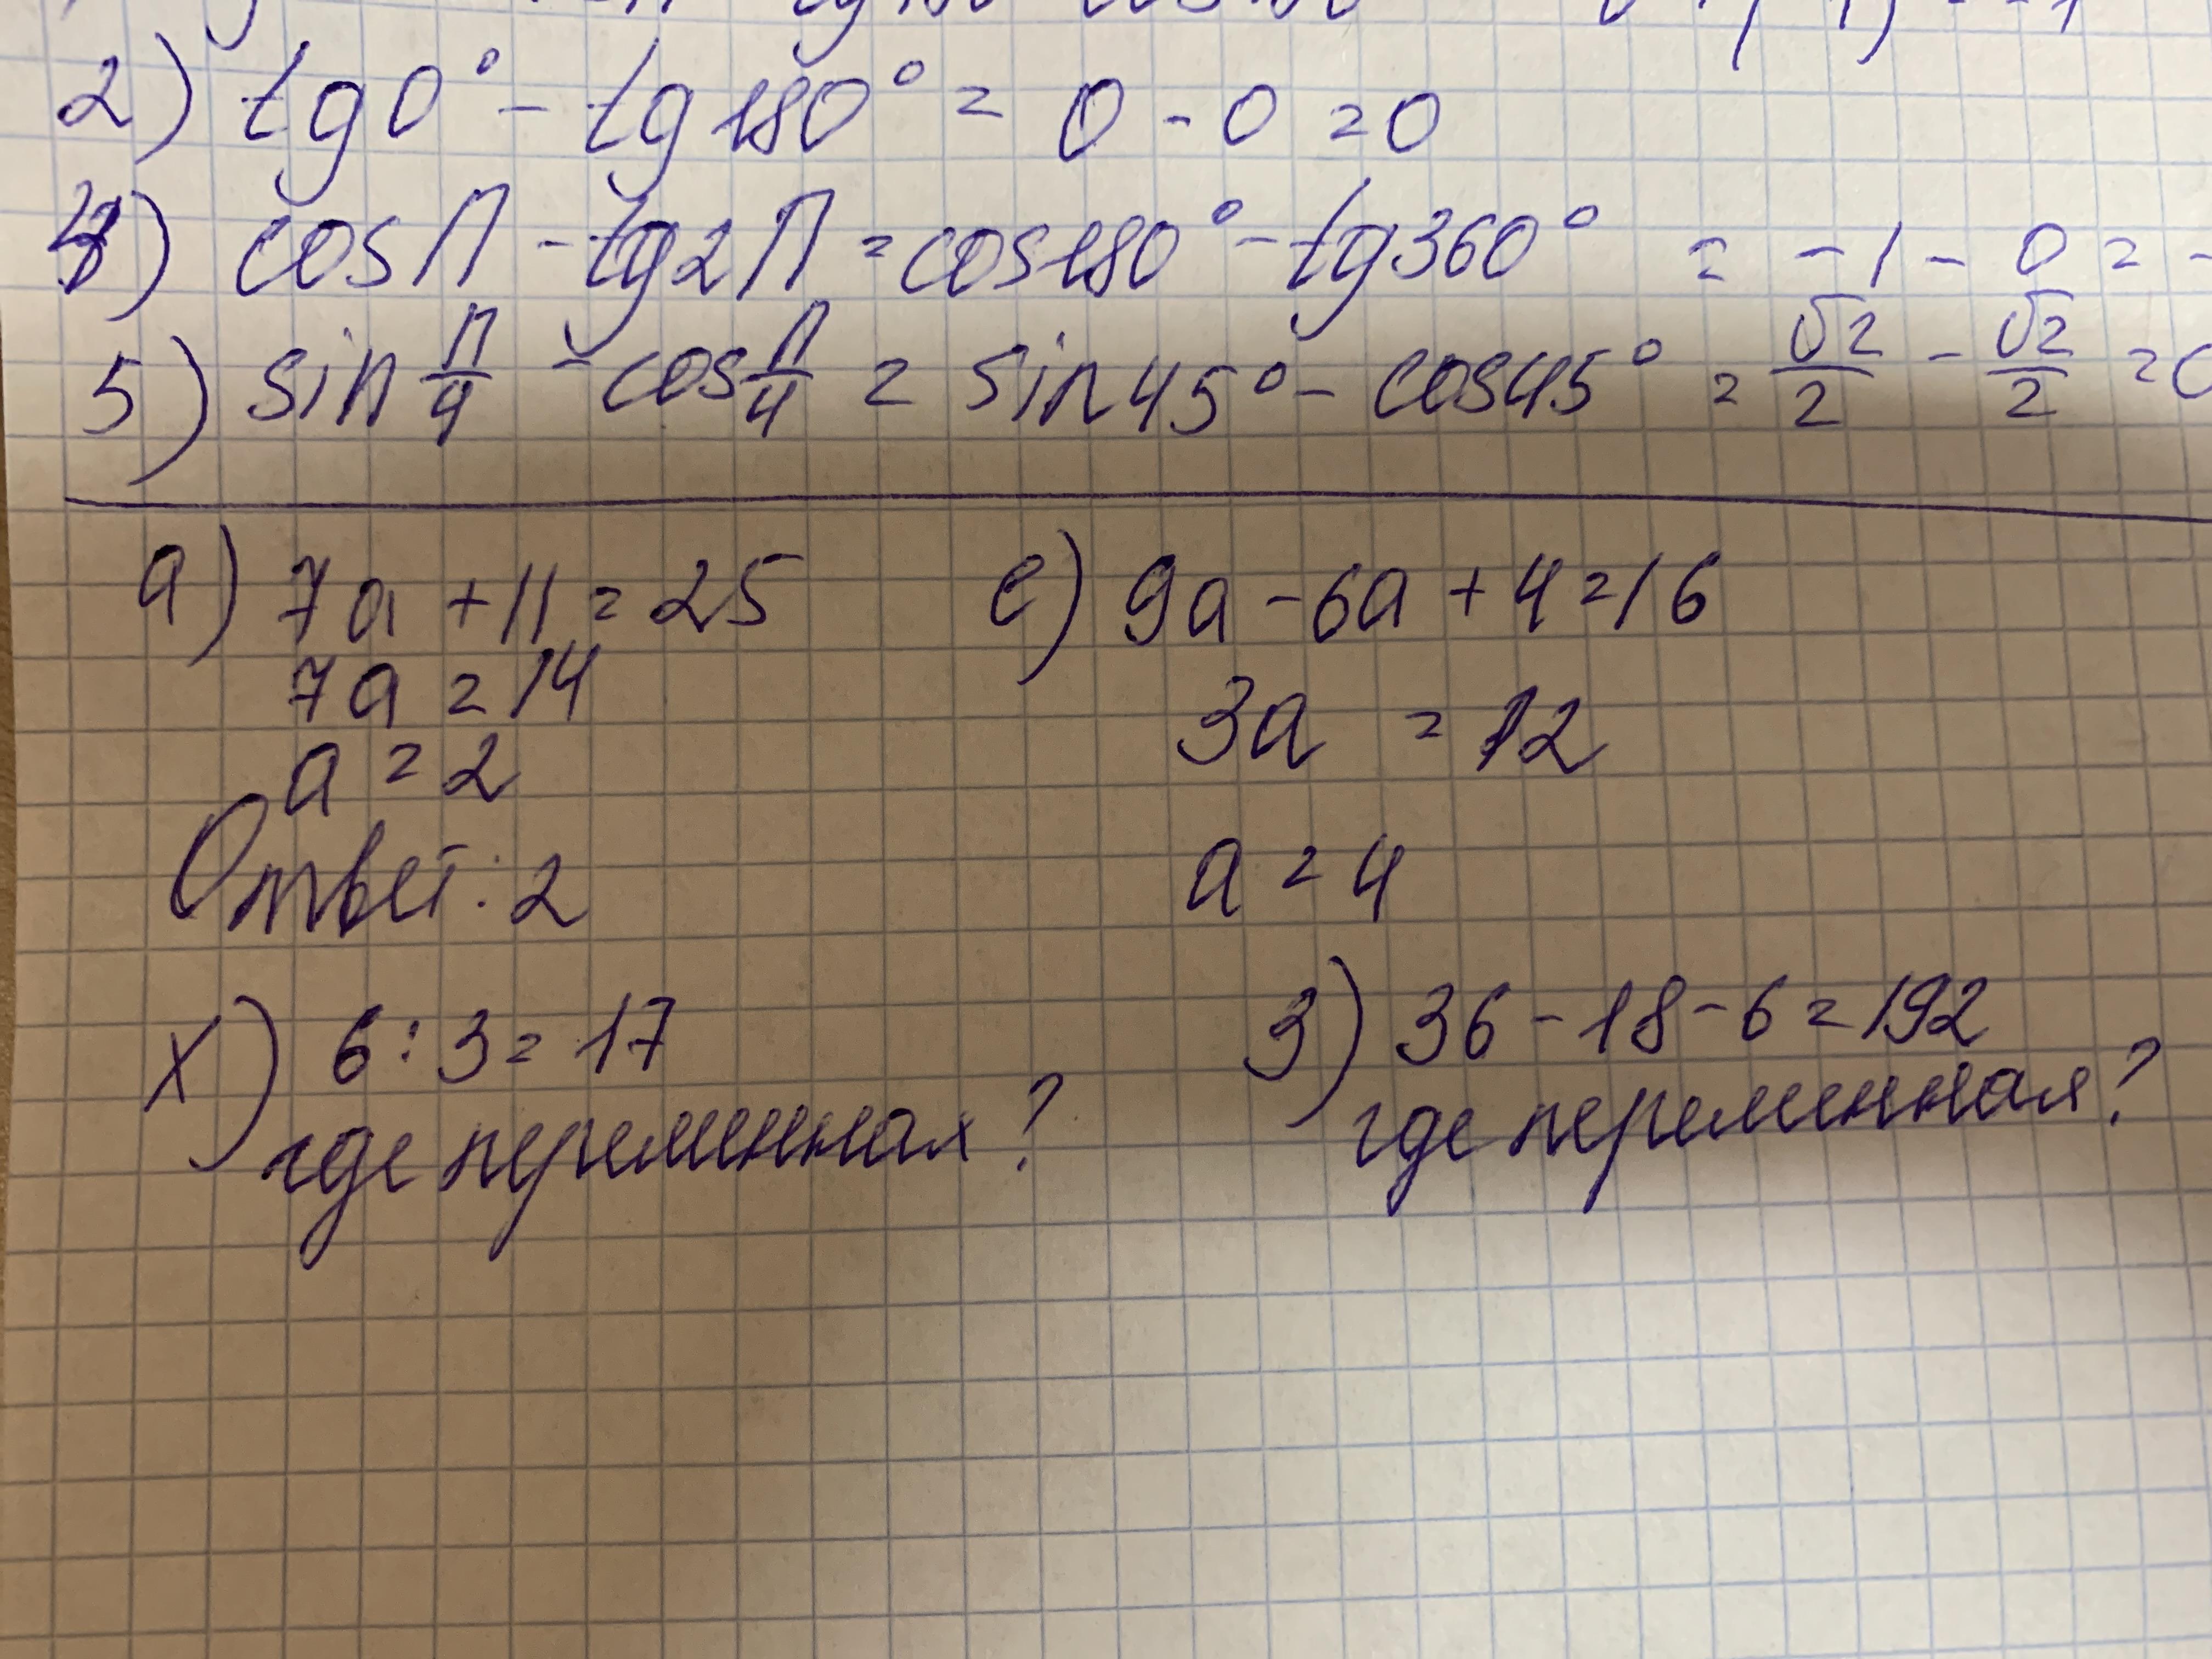 2) tg 0° - tg 180° = 0 - 0 = 0
4) cos π - tg 2π = cos 180° - tg 360° = -1 - 0 = -
5) sin π/4 - cos π/4 = sin 45° - cos 45° = √2/2 - √2/2 = 0
а) 7a + 11 = 25
7a = 14
a = 2
Ответ: 2
е) 9a - 6a + 4 = 16
3a = 12
a = 4
х) 6 : 3 = 17
где переменная?
3) 36 - 18 - 6 = 192
где переменная?